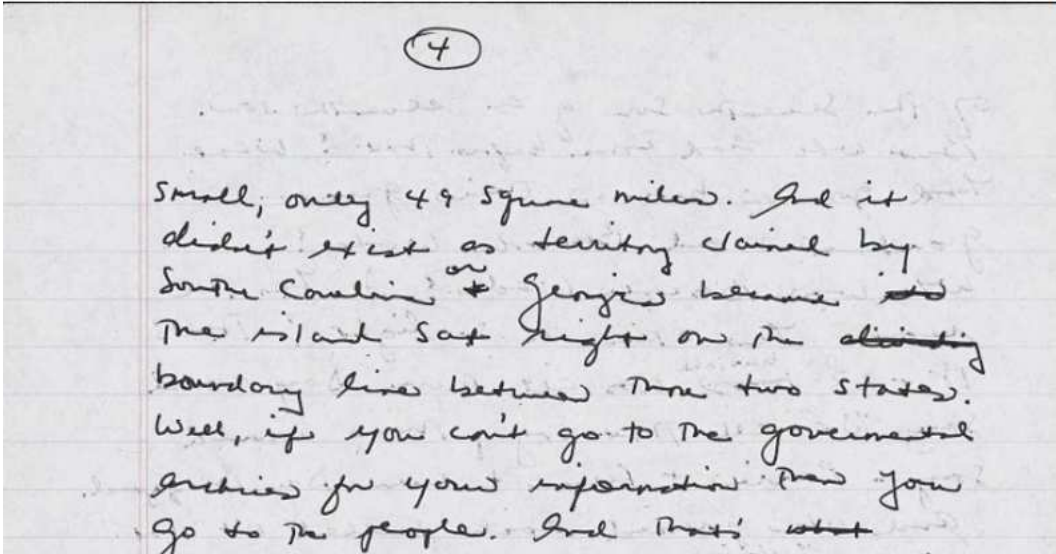 4
small, only 49 square miles. And it
didn't exist as territory claimed by
or
South Carolina + Georgia because
the island sat right on the dividing
boundary line between those two states.
Well, if you can't go to the governmental
archives for your information then you
go to the people. And that's what